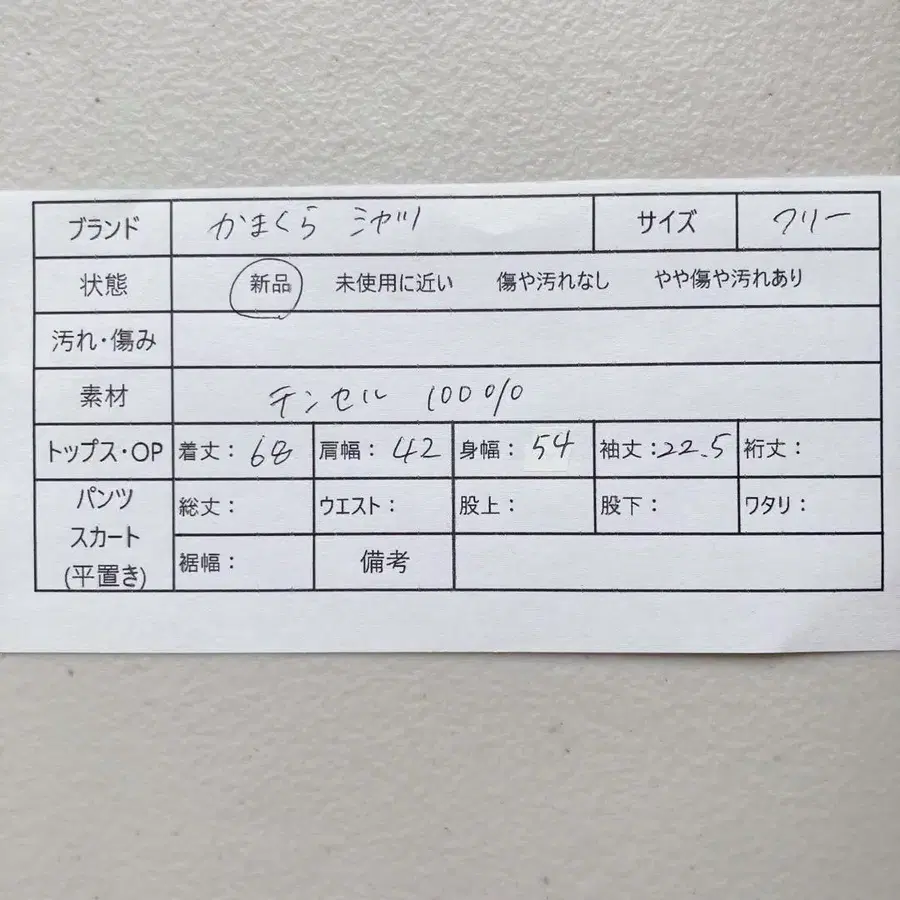 ブランド かまくら シャツ サイズ フリー
状態 新品 未使用に近い 傷や汚れなし やや傷や汚れあり
汚れ・傷み
素材 テンセル 100%
トップス・OP 着丈: 68 肩幅: 42 身幅: 54 袖丈:22.5 裄丈:
パンツ
スカート
(平置き)
総丈: ウエスト: 股上: 股下: ワタリ:
裾幅: 備考